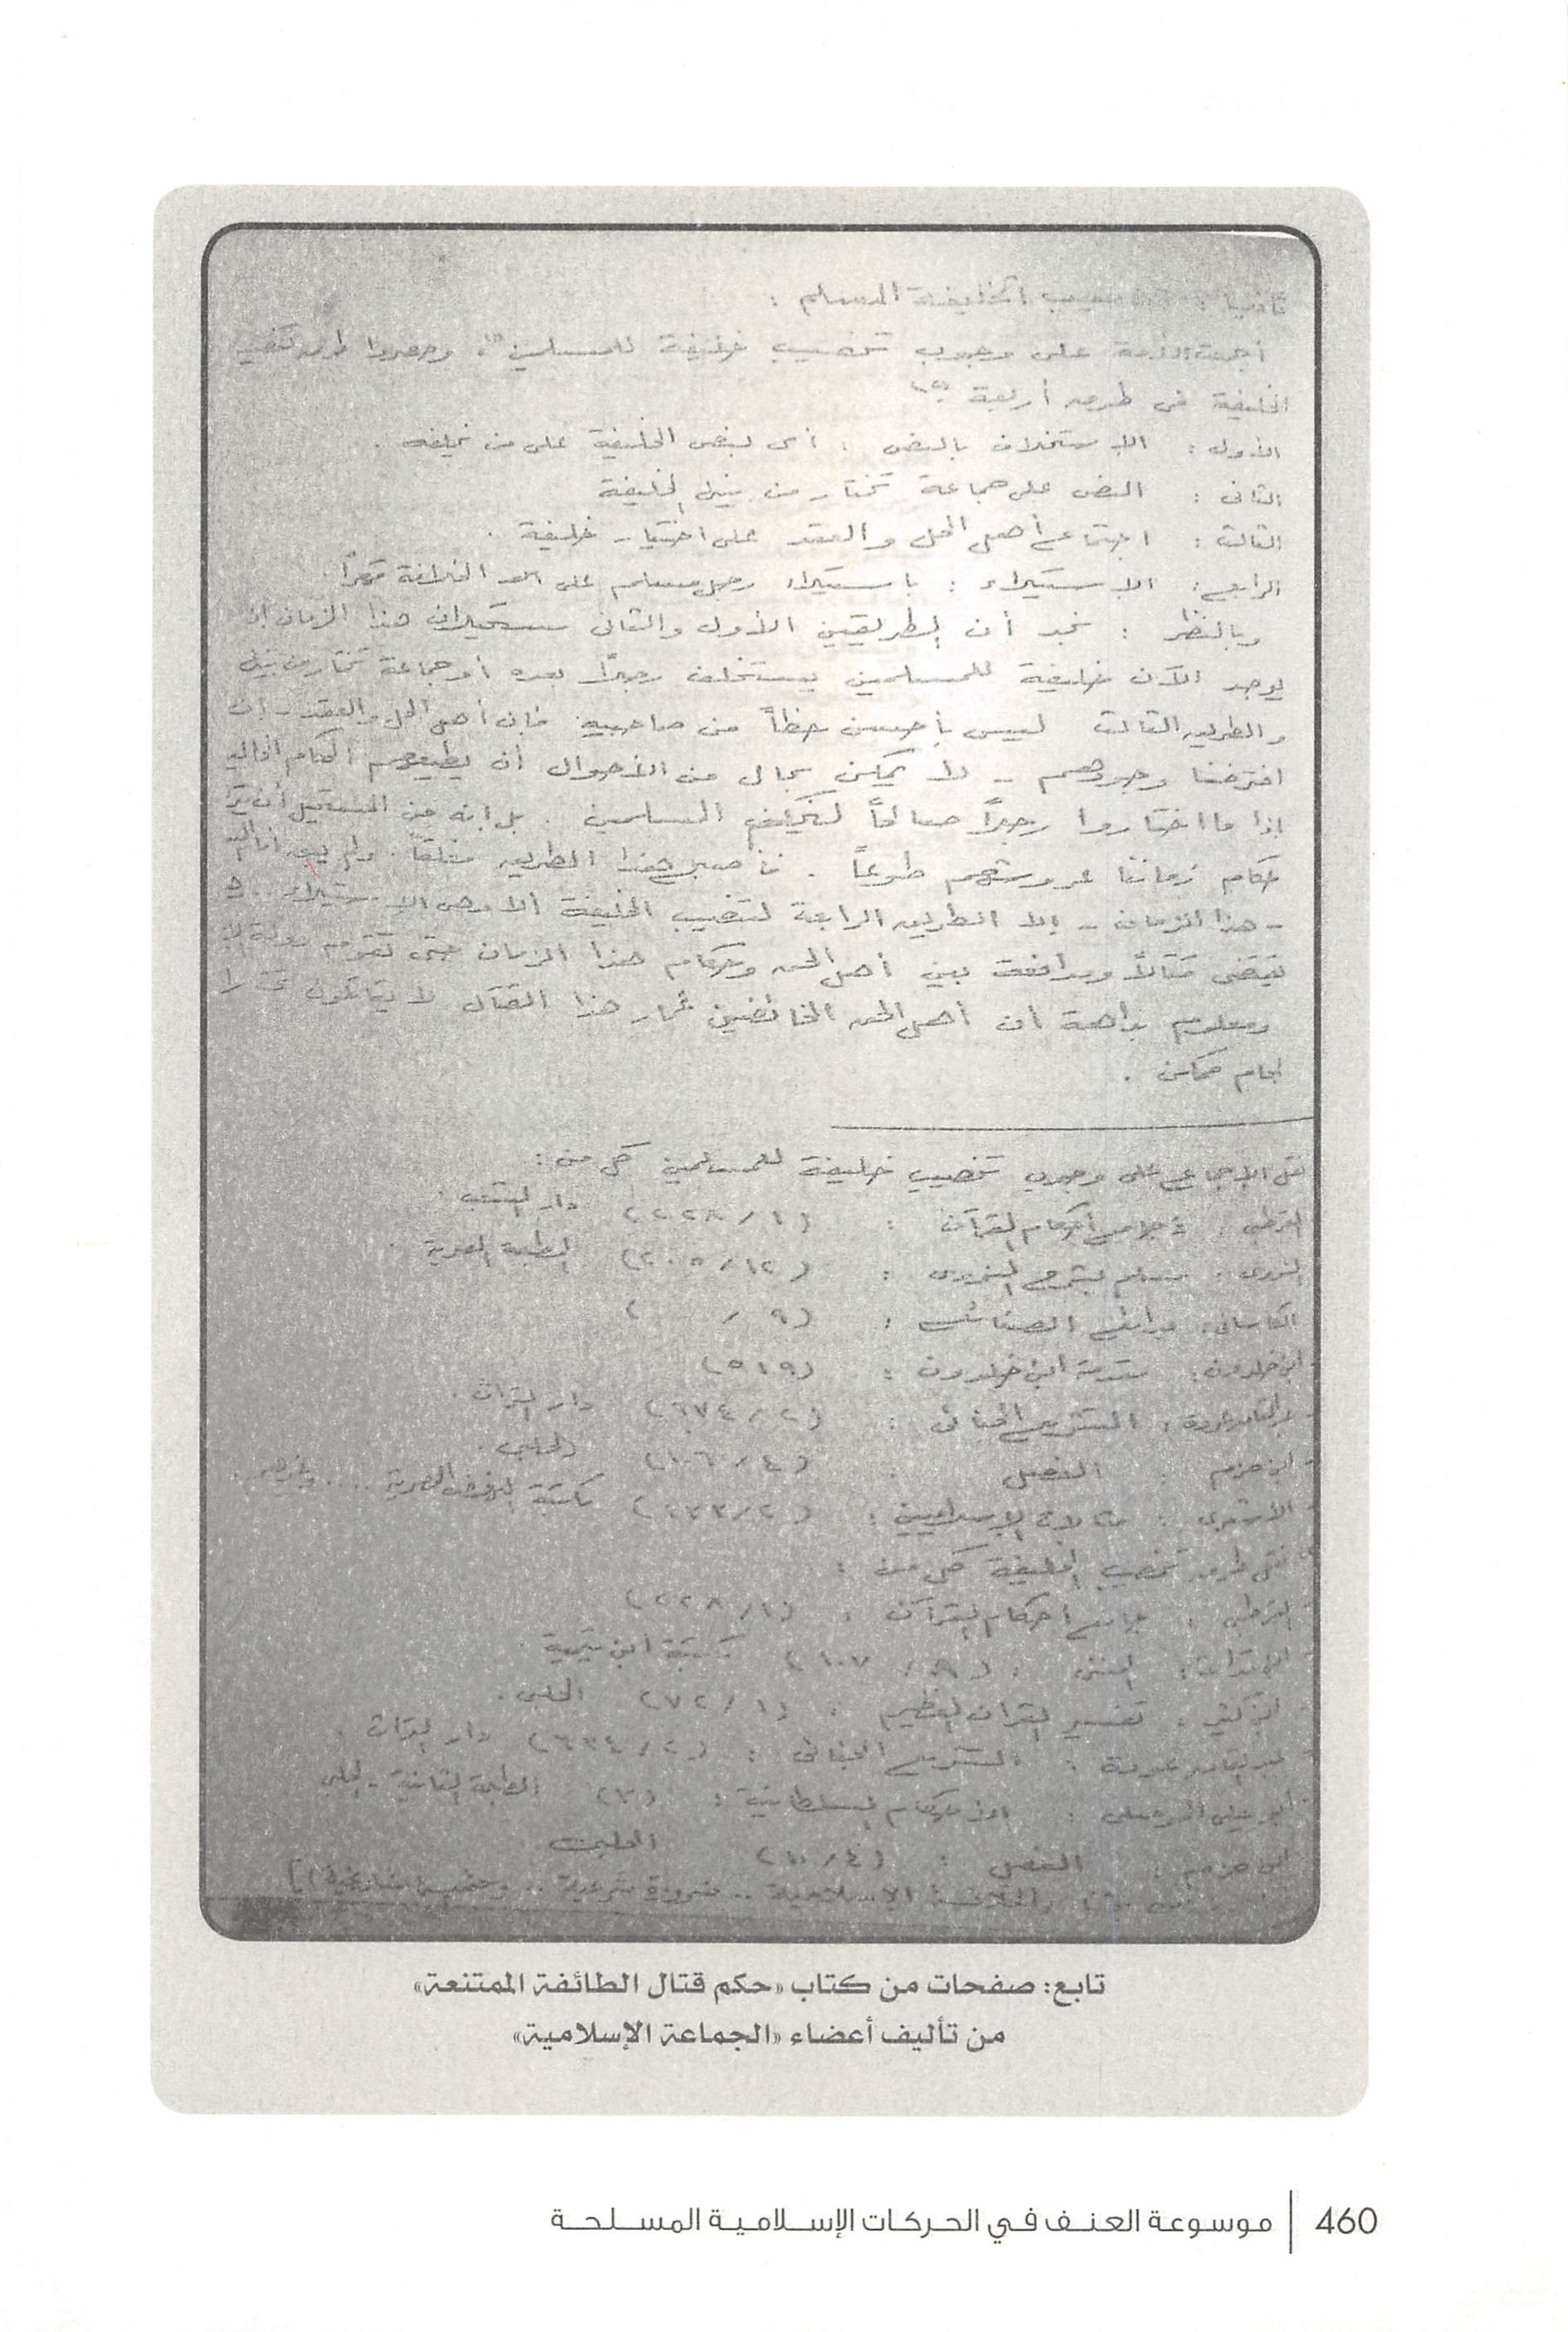 ثانيا : تنصيب الخليفة المسلم :
أجمعت الأمة على وجوب تنصيب خليفة للمسلمين (١)، وحصروا طرق تنصيب
الخليفة فى طرق أربعة (٢)
الأول : الاستخلاف بالنص : أى بنص الخليفة على من يخلفه .
الثانى : النص على جماعة تختار من بينها خليفة
الثالث : اجتماع أهل الحل والعقد على اختيار خليفة .
الرابع : الاستيلاء : باستيلاء رجل مسلم على الخلافة قهراً .
وبالنظر : نجد أن الطريقين الأول والثانى مستحيلان هذا الزمان إذ
يوجد الآن خليفة للمسلمين يستخلف رجلاً بعده أو جماعة تختار من بينها
والطريق الثالث ليس بأحسن حظاً من صاحبيه فإن أهل الحل والعقد - إن
افترضنا وجودهم - لا يمكن بحال من الأحوال أن يطيعهم الحكام
إذا ما اختاروا رجلاً صالحاً المسلمين . بل إنه من المستحيل أن
حكام زماننا عروشهم طوعاً . فأصبح هذا الطريق مغلقاً . ولم يبق
- هذا الزمان - إلا الطريق الرابعة لتنصيب الخليفة ألا وهى الاستيلاء ..
يقتضى قتالاً ومدافعة بين أهل الحق وحكام هذا الزمان حتى تقوم دولة
ومعلوم بداهة أن أهل الحق الخائضين غمار هذا القتال لا يقاتلون تحت
إمام ممكن .
نقل الإجماع على وجوب تنصيب خليفة للمسلمين كل من :
القرطبى : جامع أحكام القرآن : (١/٢٢٨) دار الشعب .
النووى : مسلم بشرح النووى : (١٢/٢٠٥) المطبعة المصرية .
الكاسانى : بدائع الصنائع : (٩/ )
ابن خلدون : مقدمة ابن خلدون : (٥١٩)
عبد القادر عودة : التشريع الجنائى : (٢/٦٧٤) دار التراث .
ابن حزم : الفصل : (٤/١٠٦) الحلبى .
الأشعرى : مقالات الإسلاميين : (٢/١٣٣) مكتبة النهضة المصرية .... وغيرهم .
نقل طرق تنصيب الخليفة كل من :
القرطبى : جامع أحكام القرآن : (١/٢٢٨)
ابن قدامة : المغنى : ( /١٠٧) مكتبة ابن تيمية
ابن كثير : تفسير القرآن العظيم : (١/٧٢) الحلبى .
عبد القادر عودة : التشريع الجنائى : (٢/٦٣٤) دار التراث .
أبو يعلى : الأحكام السلطانية : (٢٣) الطبعة الثانية - الحلبى
ابن حزم : الفصل : الحلبى
الخلافة الإسلامية .. ضرورة شرعية .. وحتمية تاريخية
تابع: صفحات من كتاب «حكم قتال الطائفة الممتنعة»
من تأليف أعضاء «الجماعة الإسلامية»
460 | موسوعة العنف في الحركات الإسلامية المسلحة